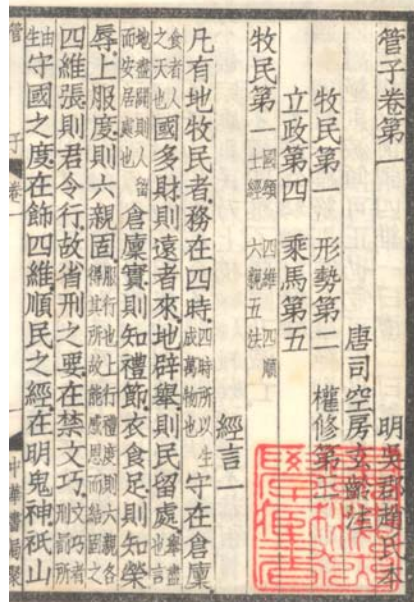 管子卷第一
明吳郡趙氏本
唐司空房玄齡注
牧民第一 形勢第二 權修第三
立政第四 乘馬第五
牧民第一 國頌 四維 四順 士經 六親五法
經言一
凡有地牧民者務在四時四時所以生成萬物也守在倉廩
食者人之天也國多財則遠者來地辟舉則民留處舉盡也言
地盡闢則人留而安居處也倉廩實則知禮節衣食足則知榮
辱上服度則六親固服行也上行禮度則六親各得其所故能感恩而結固之
四維張則君令行故省刑之要在禁文巧文巧者刑罰所
由生守國之度在飾四維順民之經在明鬼神祇山
管子 卷一
中華書局聚